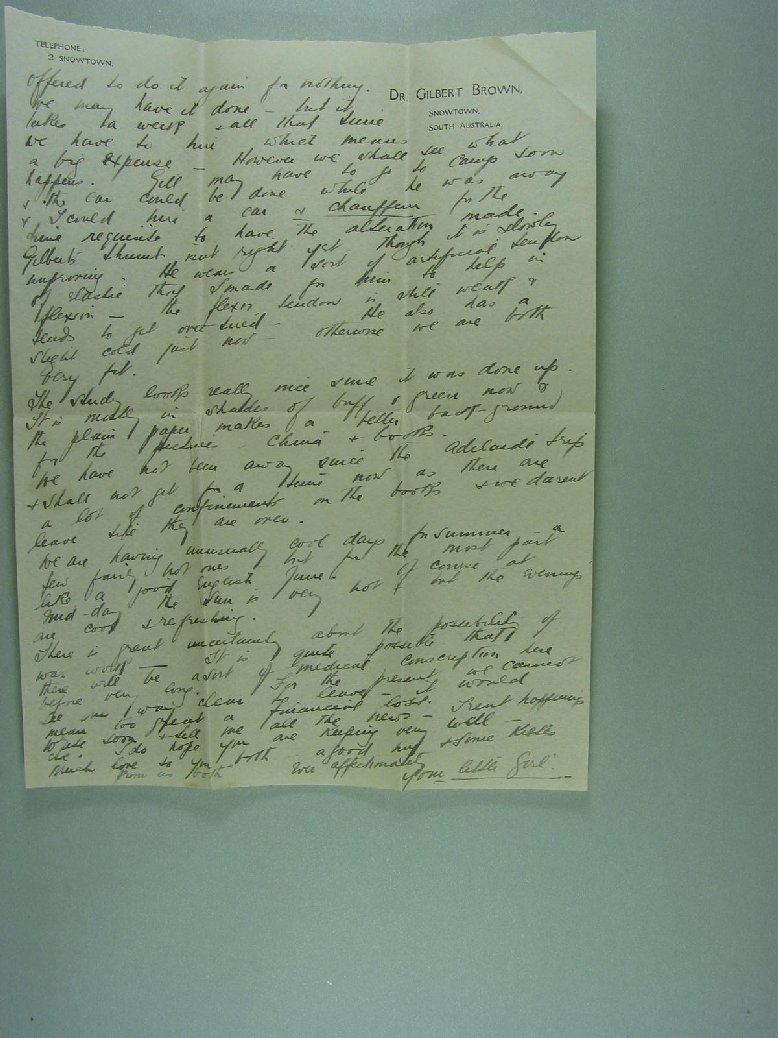 TELEPHONE:
2 SNOWTOWN.
DR. GILBERT BROWN,
SNOWTOWN,
SOUTH AUSTRALIA
offered to do it again for nothing.
We may have it done – but it
takes a week & all that time
we have to hire which means
a big expense – However we shall see what
happens. Gill may have to go to camp soon
& the car could be done while he was away
& I could hire a car & chauffeur for the
time requisite to have the alteration made.
Gilbert's thumb not right yet though it is slowly
improving. He wears a sort of artificial tendon
of elastic they made for him to help in
flexion – the flexor tendon is still weak &
tends to get over-tired – He also has a
slight cold just now – otherwise we are both
very fit.
The study looks really nice since it was done up.
It is mostly in shades of buff & green now &
the plain paper makes a better back-ground
for the pictures – china & books.
We have not been away since the Adelaide trip
& shall not get for a time now as there are
a lot of confinements on the books & we darent
leave till they are over.
We are having unusually cool days for summer – a
few fairly hot ones but for the most part
like a good English June. Of course at
mid-day the sun is very hot but the evenings
are cool & refreshing.
There is great uncertainty about the possibility of
war work – It is quite possible that
there will be a sort of medical conscription here
before very long. For the present we cannot
see our way clear to leave – it would
mean too great a financial loss.
soon & tell me all the news –
I do hope you are keeping very well –
Much love to you both – a good hug & some
from us both Ever affectionately
Your little Girl.